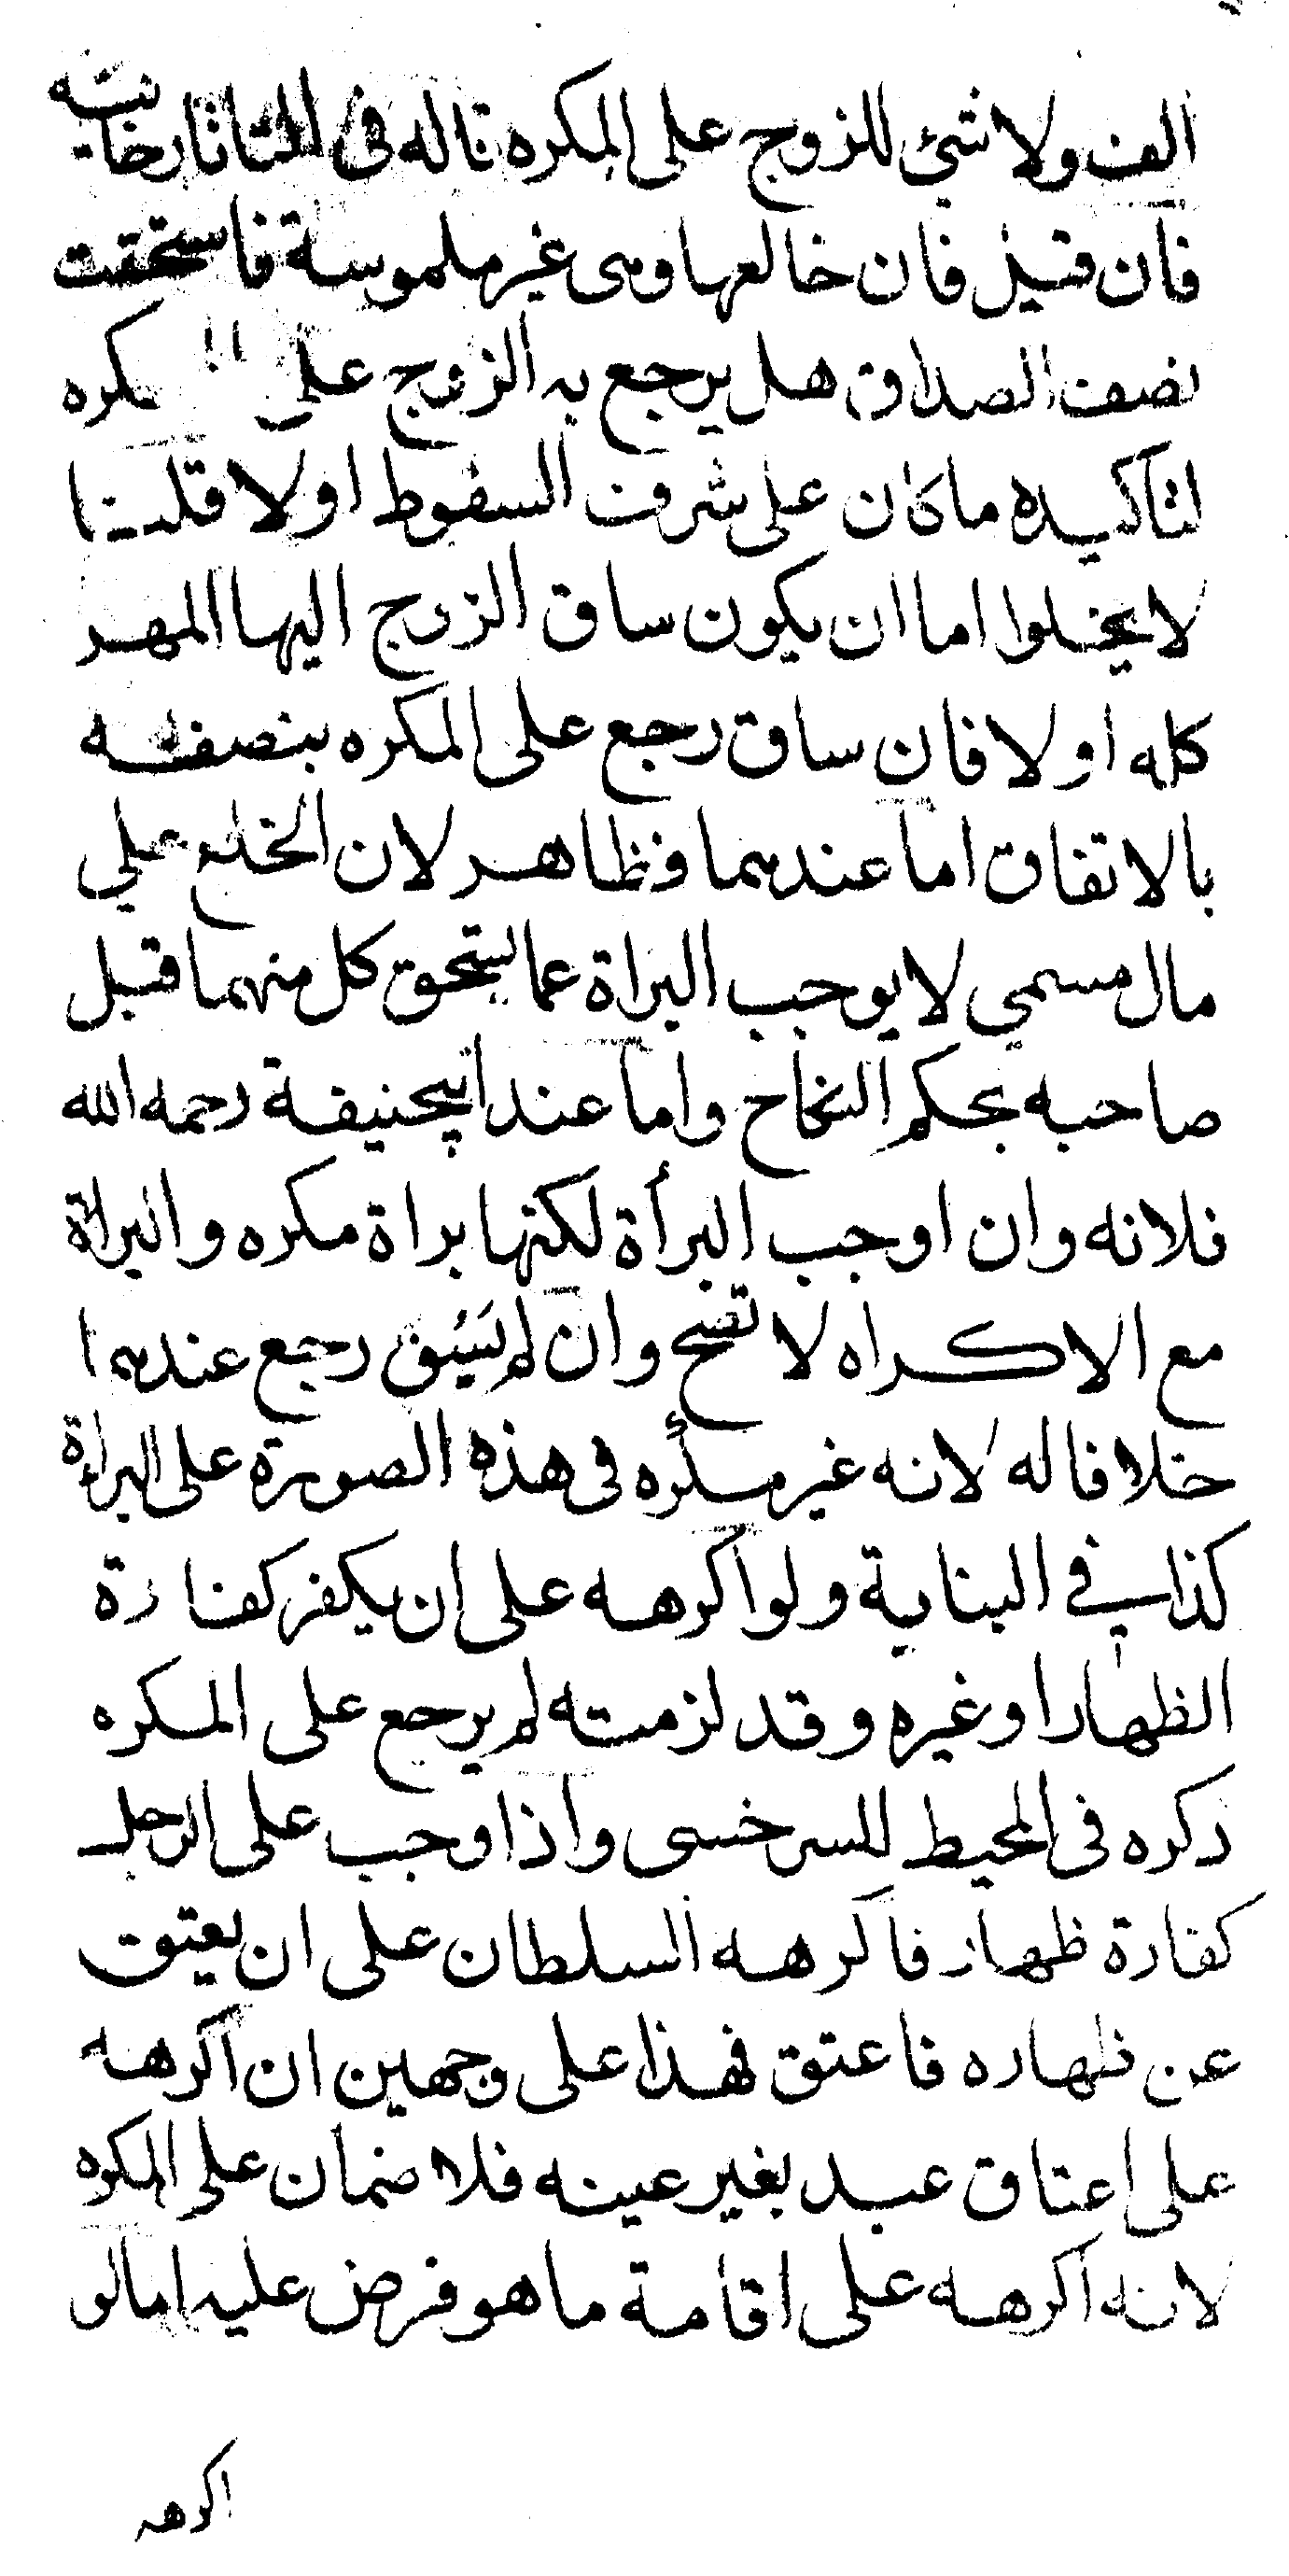 الف ولا شئ للزوج على المكره قاله فى التاتارخانية
فان قيل فان خالعها وهى غير ملموسة فاستحقت
نصف الصداق هل يرجع به الزوج على المكره
لتاكيده ما كان على شرف السقوط او لا قلنا
لا يخلوا اما ان يكون ساق الزوج اليها المهر
كله او لا فان ساق رجع على المكره بنصفه
بالاتفاق اما عندهما فظاهر لان الخلع على
مال مسمى لا يوجب البراة عما يستحق كل منهما قبل
صاحبه بحكم النكاح واما عند ابيحنيفة رحمه الله
فلانه وان اوجب البرأة لكنها براة مكره والبراة
مع الاكراه لا تصح وان لم يَسُق رجع عندهما
خلافا له لانه غير مكره فى هذه الصورة على البراءة
كذا فى البناية ولو اكرهه على ان يكفر كفارة
الظهار او غيره وقد لزمته لم يرجع على المكره
ذكره فى المحيط للسرخسى واذا وجب على الرجل
كفارة ظهار فاكرهه السلطان على ان يعتق
عن ظهاره فاعتق فهذا على وجهين ان اكرهه
على اعتاق عبد بغير عينه فلا ضمان على المكره
لانه اكرهه على اقامة ما هو فرض عليه اما لو
اكرهه